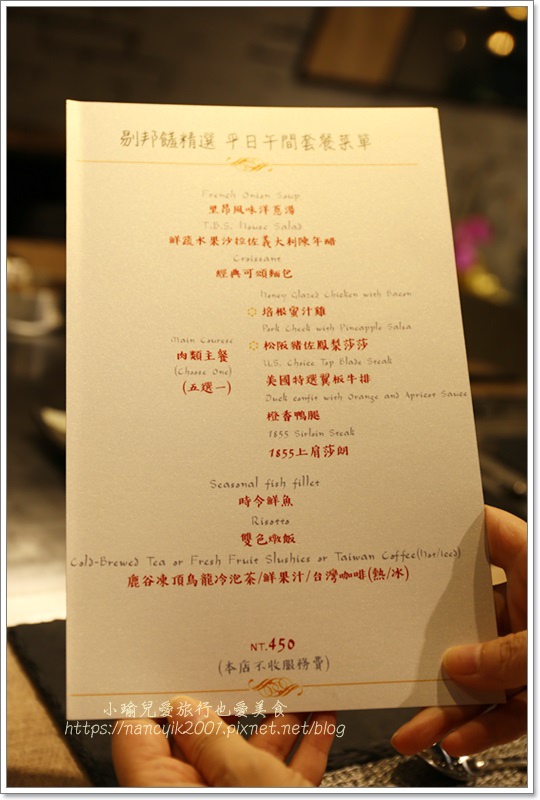 剔邦饈精選 平日午間套餐菜單
French Onion Soup
里昂風味洋蔥湯
T.B.S. House Salad
鮮蔬水果沙拉佐義大利陳年醋
Croissant
經典可頌麵包
Honey Glazed Chicken with Bacon
培根蜜汁雞
Pork Cheek with Pineapple Salsa
松阪豬佐鳳梨莎莎
U.S. Choice Top Blade Steak
美國特選翼板牛排
Duck confit with Orange and Apricot Sauce
橙香鴨腿
1855 Sirloin Steak
1855上肩莎朗
Main Courese
肉類主餐
(Choose One)
(五選一)
Seasonal fish fillet
時令鮮魚
Risotto
雙色燉飯
Cold-Brewed Tea or Fresh Fruit Slushies or Taiwan Coffee(Hot/Iced)
鹿谷凍頂烏龍冷泡茶/鮮果汁/台灣咖啡(熱/冰)
NT.450
(本店不收服務費)
小瑜兒愛旅行也愛美食
https://nancyik2007.pixnet.net/blog